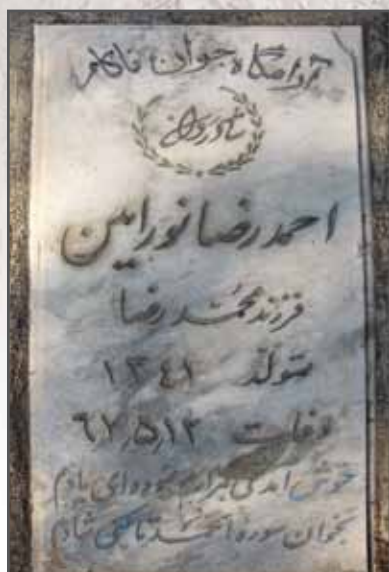 آرامگاه جوان ناکام
شادروان
احمد رضا نورامین
فرزند محمد رضا
متولد ۱۳۴۱
وفات ۶۷٫۵٫۱۲
خوش آمدی بمزارم نموده‌ای یادم
بخوان سوره الحمد تا کنی شادم